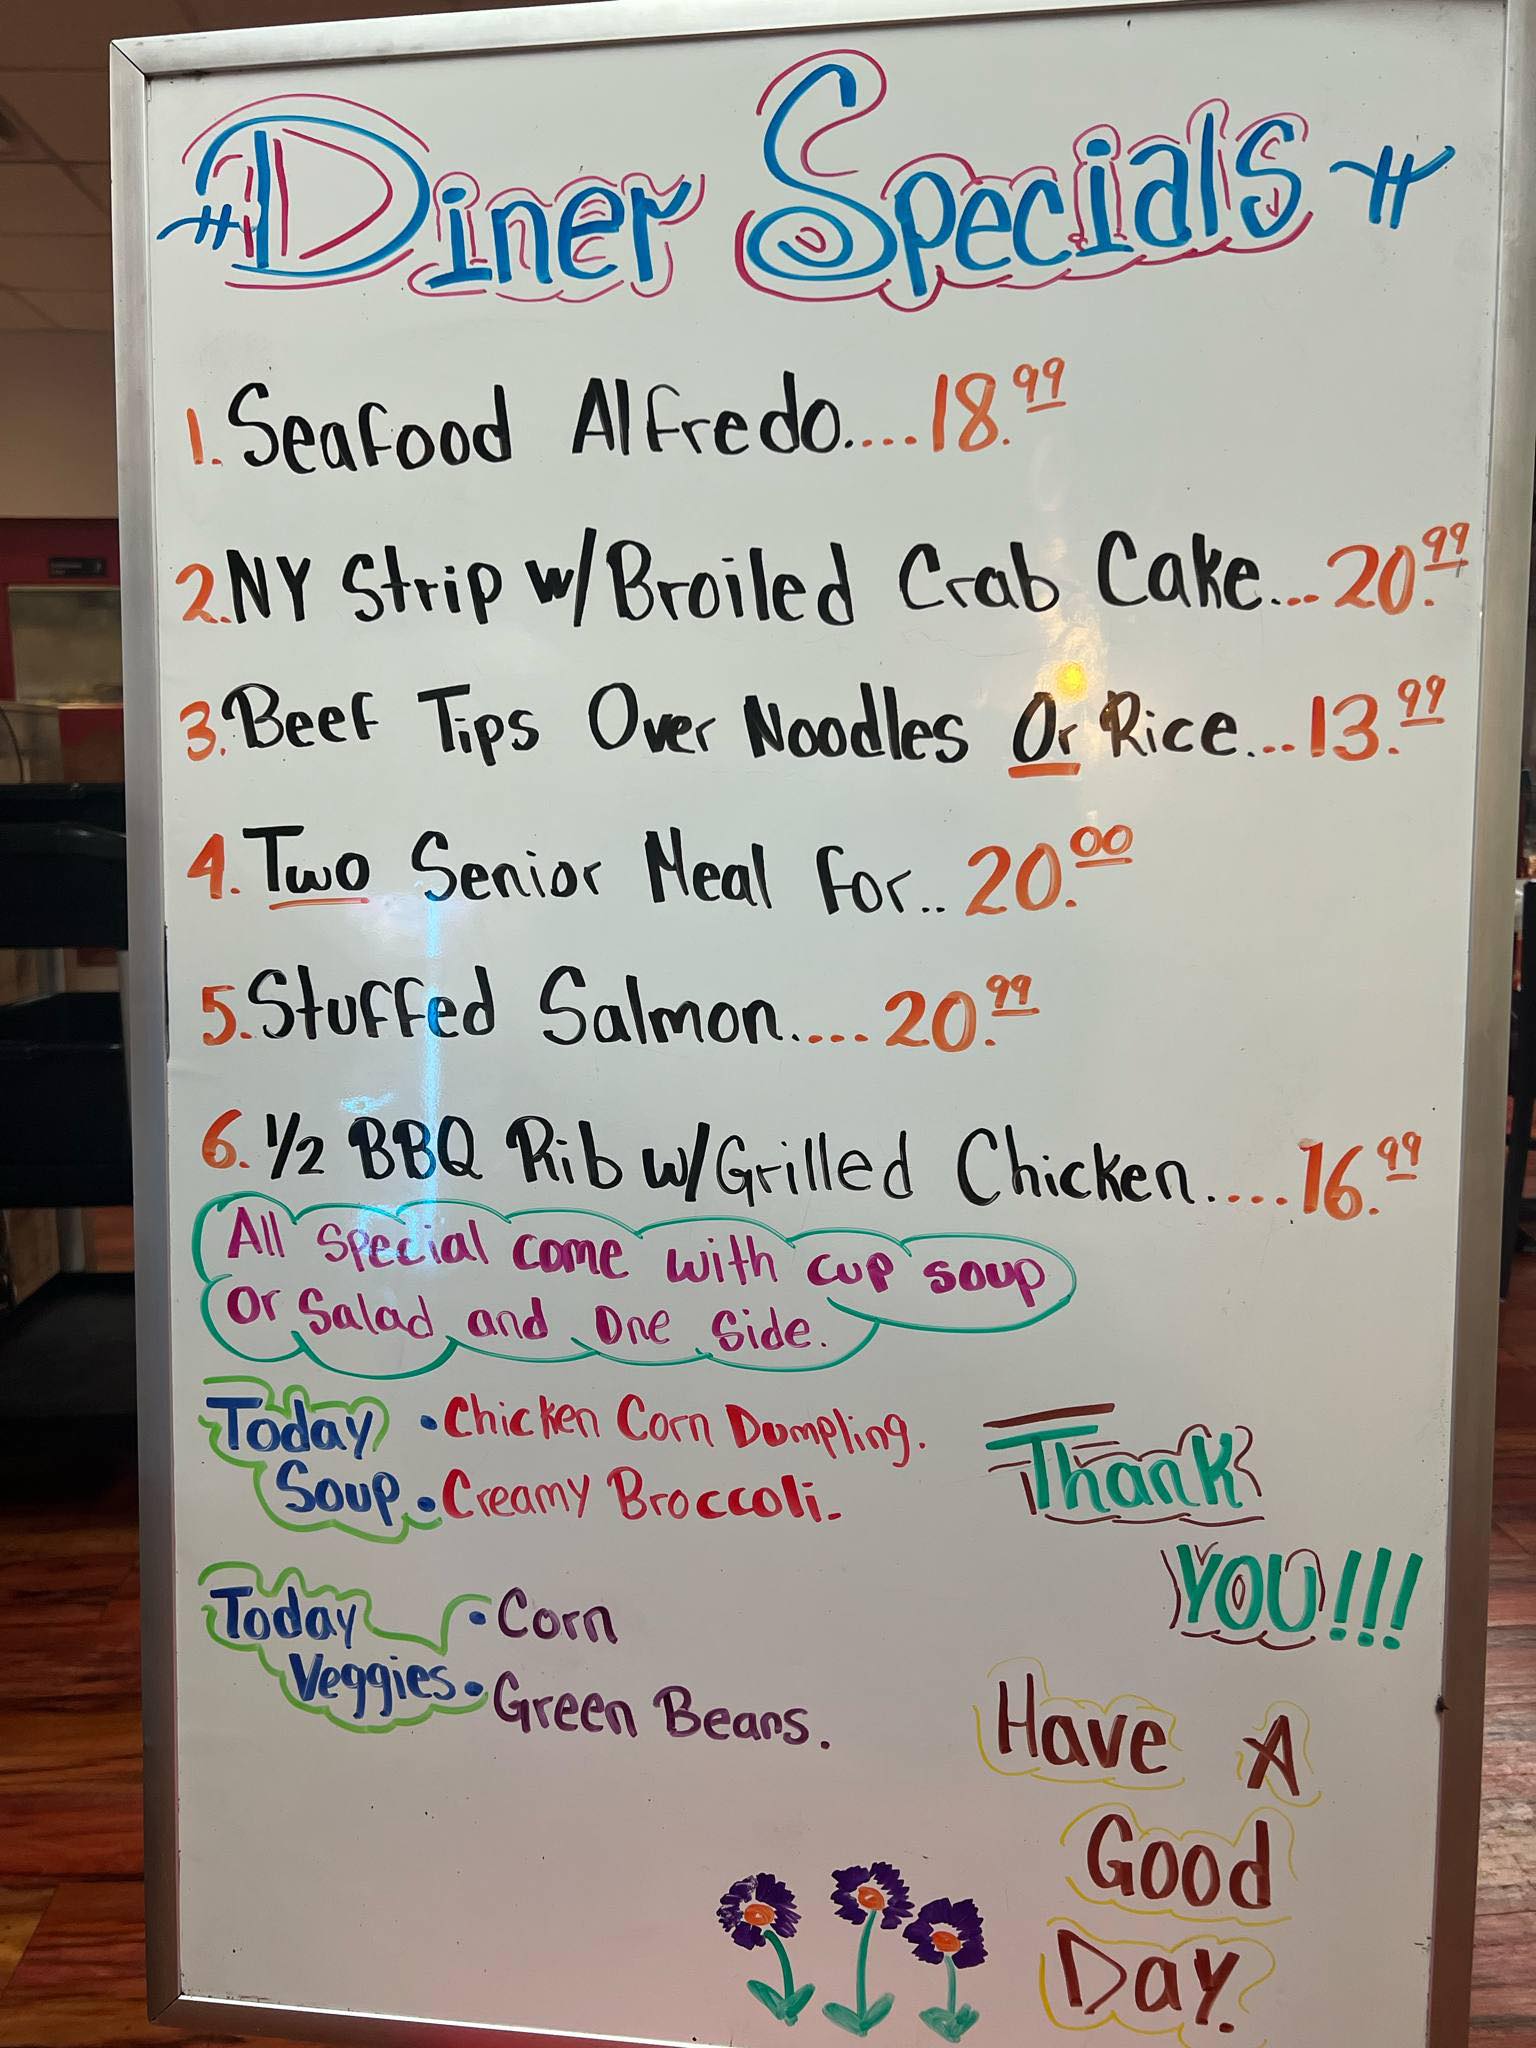 Diner Specials
1. Seafood Alfredo....18.99
2. NY Strip w/Broiled Crab Cake...20.99
3. Beef Tips Over Noodles Or Rice...13.99
4. Two Senior Meal For..20.00
5. Stuffed Salmon....20.99
6. 1/2 BBQ Rib w/Grilled Chicken.....16.99
All special come with cup soup
Or Salad and One Side.
Today • Chicken Corn Dumpling.
Soup • Creamy Broccoli.
Thank
YOU!!!
Today • Corn
Veggies • Green Beans.
Have A
Good
Day.